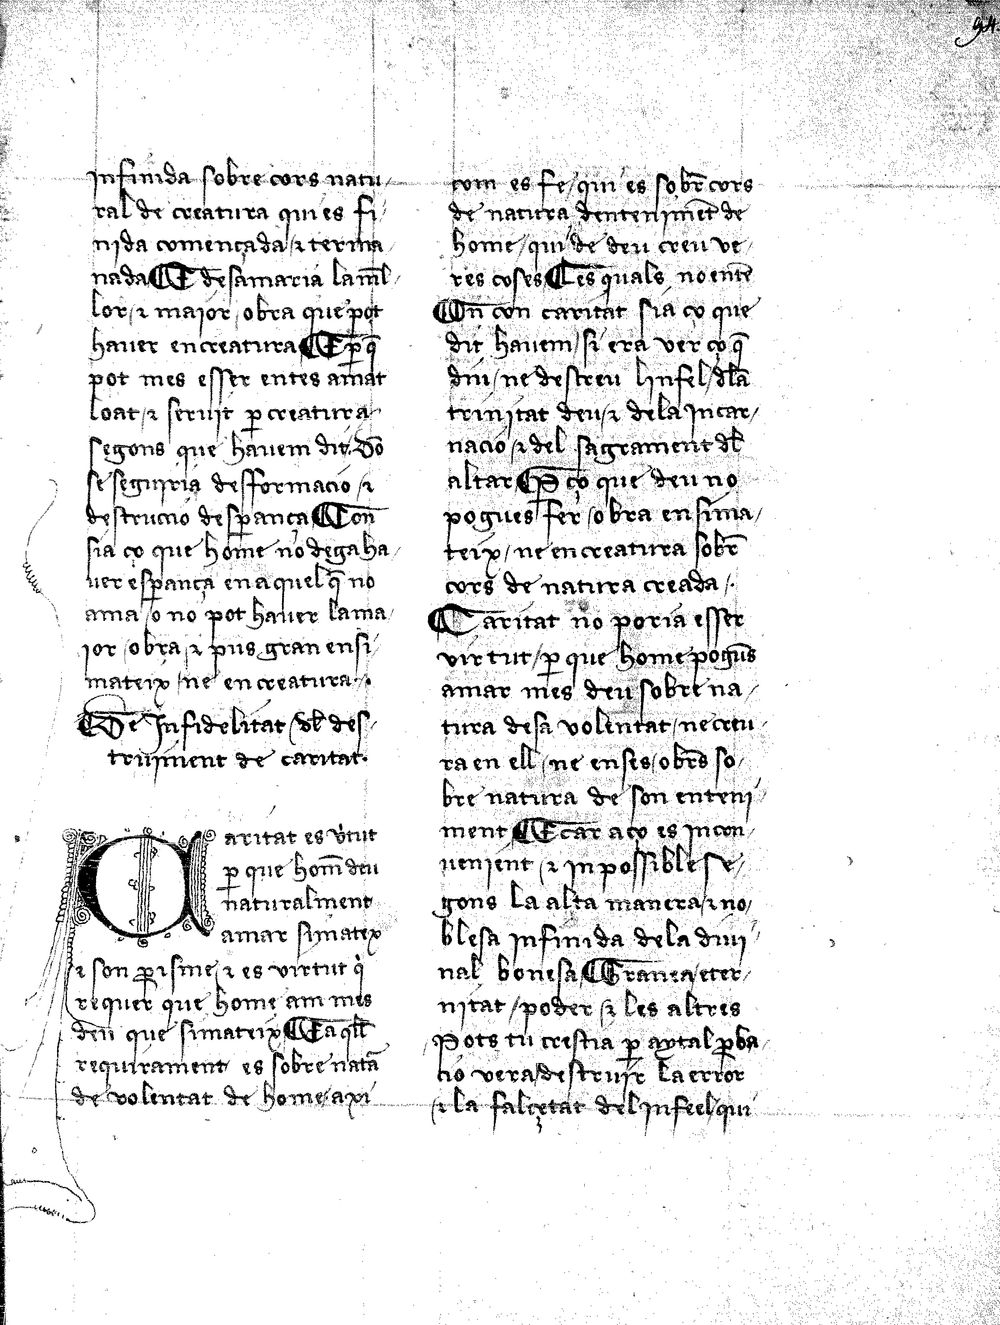 94.
infinida sobre cors natu/
ral de creatura qui es fi/
nida començada / ⁊ termi
nada ¶ E desamaria lamil̄/
lor / ⁊ maior / obra que pot
hauer en creatura ¶ E ꝑ q̄
pot mes esser entes amat
loat / ⁊ seruit ꝑ creatura /
segons que hauem dit /
se seguiria desformacio / ⁊
destruccio desꝑança ¶ Con
sia ço que home no dega ha/
uer esꝑança en aquel q̄ no
ama / o no pot hauer lama/
ior / obra / ⁊ pus gran en si/
mateix / ne en creatura /.
¶ De Infidelitat / des/
truiment de caritat.
Caritat es v̄tut
ꝑ que hom̄ deu
naturalment
amar simateix
⁊ son ꝑisme / ⁊ es virtut q̇
requer que home am mes
deu que simateix ¶ E aq̄ll
requirament es sobre natā
de volentat de home / axi
com es fe / qui es sobr̄ cors
de natura denteniment de
home / qui de deu creu ve/
res coses ¶ Les quals no enten
¶ On con caritat sia ço que
dit hauem / si era ver ço q̄
diu / ne destreu linfel / dla
trinitat deu / ⁊ dela Incar/
nacio / ⁊ del sagrament dl̄
altar ¶ ꝑ ço que deu no
pogues fer / obra en sima/
teix / ne en creatura sobr̄
cors de natura creada /.
¶ Caritat no poria esser
virtut / ꝑ que home pogues
amar mes deu sobre na/
tura desa volentat / ne creu/
ra en ell / ne en ses / obres so/
bre natura de son enteni/
ment ¶ E car aço es incon/
uenient / ⁊ inpossible / se/
gons la alta manera / ⁊ no/
blesa infinida dela diui/
nal bonesa ¶ Granea / eter/
nitat / poder / ⁊ les altres
Pots tu crestia ꝑ aytal ꝓba/
cio vera / destruir la error
⁊ la falcetat del infeel qui